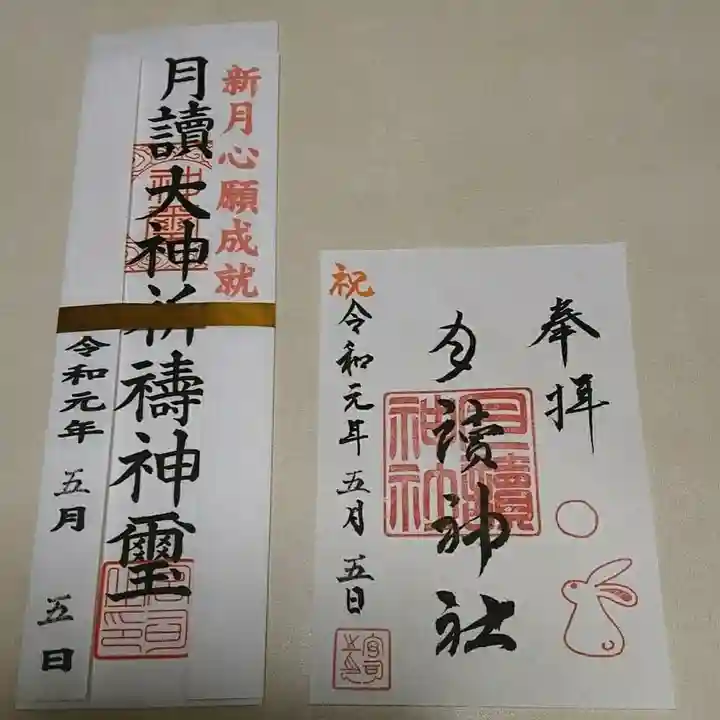 新月心願成就
月讀大神祈禱神璽
令和元年 五月 五日
奉拝
月讀神社
祝
令和元年 五月 五日